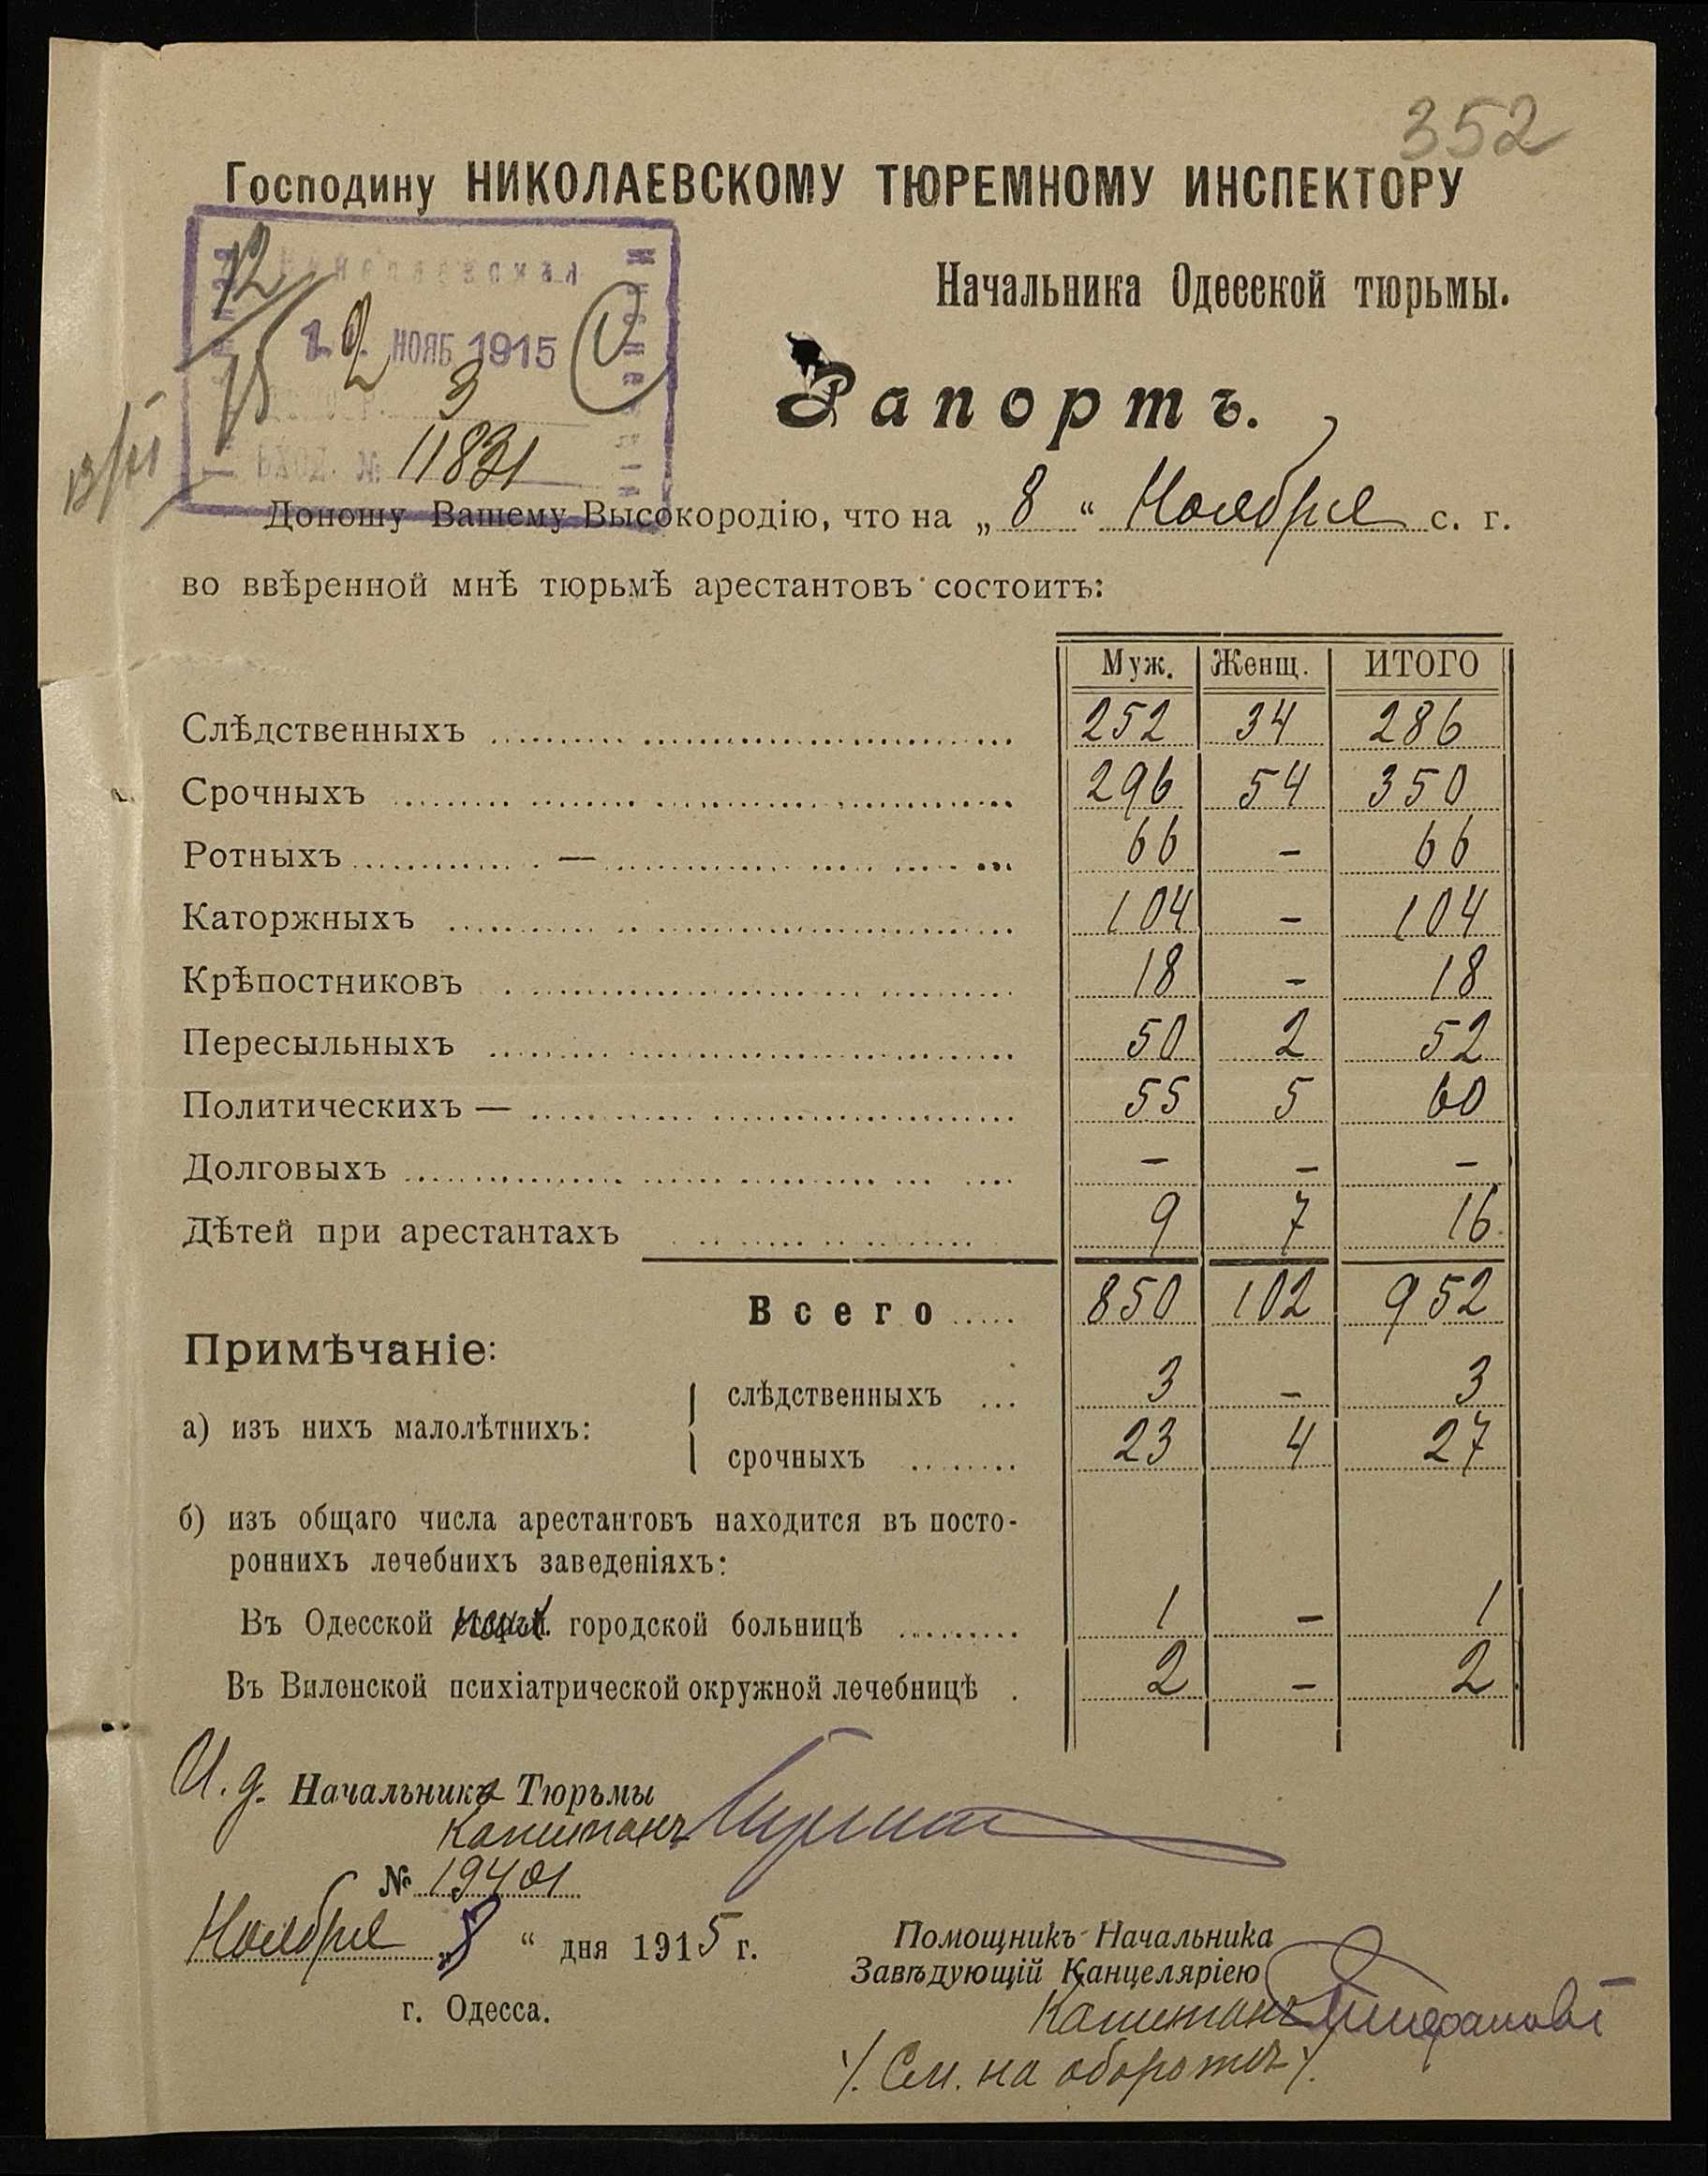 352
Господину НИКОЛАЕВСКОМУ ТЮРЕМНОМУ ИНСПЕКТОРУ
Начальника Одесской тюрьмы.
12
НОЯБ 1915
3
Вход. № 11831
Рапортъ.
Доношу Вашему Высокородію, что на „ 8 “ Ноября с. г.
во ввѣренной мнѣ тюрьмѣ арестантовъ состоитъ:
Муж. Женщ. ИТОГО
Слѣдственныхъ 252 34 286
Срочныхъ 296 54 350
Ротныхъ — 66 - 66
Каторжныхъ 104 - 104
Крѣпостниковъ 18 - 18
Пересыльныхъ 50 2 52
Политическихъ — 55 5 60
Долговыхъ - - -
Дѣтей при арестантахъ 9 7 16
Всего 850 102 952
Примѣчаніе:
а) изъ нихъ малолѣтнихъ:
слѣдственныхъ 3 - 3
срочныхъ 23 4 27
б) изъ общаго числа арестантовъ находится въ посто-
роннихъ лечебнихъ заведеніяхъ:
Въ Одесской городской больницѣ 1 - 1
Въ Виленской психіатрической окружной лечебницѣ 2 - 2
И. д. Начальника Тюрьмы
Капитанъ
№ 19401
Ноября „8“ дня 1915 г.
г. Одесса.
Помощникъ Начальника
Завѣдующій Канцеляріею
Капитанъ
/. См. на оборотѣ /.